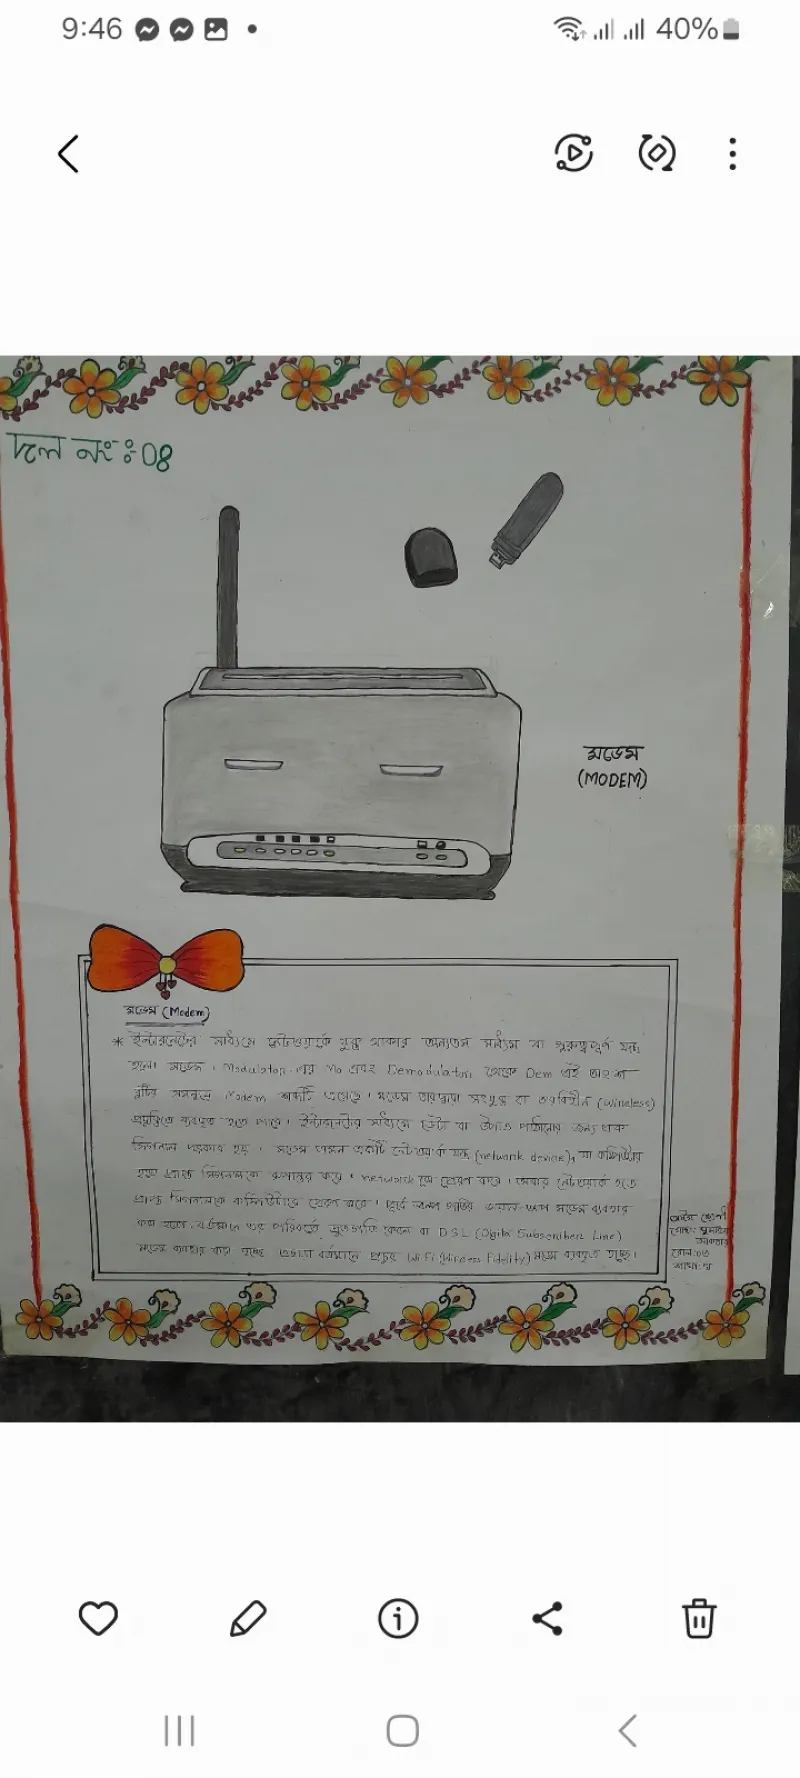 9:46
40%
দল নং ঃ 08
মডেম
(MODEM)
মডেম (Modem)
* ইন্টারনেটের মাধ্যমে নেটওয়ার্কে যুক্ত থাকার অন্যতম মাধ্যম বা গুরুত্বপূর্ণ যন্ত্র
হলো মডেম। Modulator এর Mo এবং Demodulator থেকে Dem এই অংশ
দুটির সমন্বয়ে Modem শব্দটি এসেছে। মডেম তারদ্বারা সংযুক্ত বা তারবিহীন (Wireless)
প্রযুক্তিতে ব্যবহৃত হতে পারে। ইন্টারনেটের মাধ্যমে ডেটা বা উপাত্ত পাঠানোর জন্য
সিগনাল দরকার হয়। মডেম এমন একটি নেটওয়ার্ক যন্ত্র (network device), যা কম্পিউটার
হতে প্রাপ্ত সিগনালকে রূপান্তর করে। network এ প্রেরণ করে। আবার নেটওয়ার্ক হতে
প্রাপ্ত সিগনালকে কম্পিউটারে প্রেরণ করে। পূর্বে অল্প গতির ডায়াল-আপ মডেম ব্যবহার
করা হতো, বর্তমানে এর পরিবর্তে দ্রুতগতি কেবল বা DSL (Digital Subscriber Line)
মডেম ব্যবহার করা হচ্ছে এছাড়া বর্তমানে প্রচুর WiFi (Wireless Fidelity) মডেম ব্যবহৃত হচ্ছে।
শ্রেণী
রোল:০৩